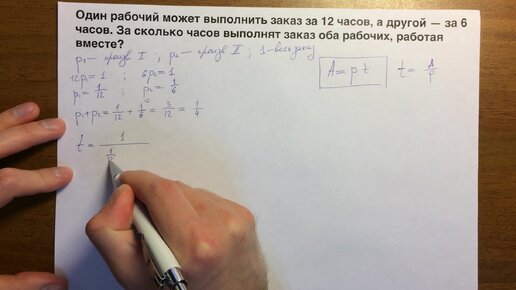 Один рабочий может выполнить заказ за 12 часов, а другой — за 6
часов. За сколько часов выполнят заказ оба рабочих, работая
вместе?
p₁ — произв. I ; p₂ — произв. II ; 1 - весь заказ
12p₁ = 1 ; 6p₂ = 1
p₁ = 1/12 ; p₂ = 1/6
p₁ + p₂ = 1/12 + 1/6 = 3/12 = 1/4
t = 1/(1/
A = p t
t = A/p